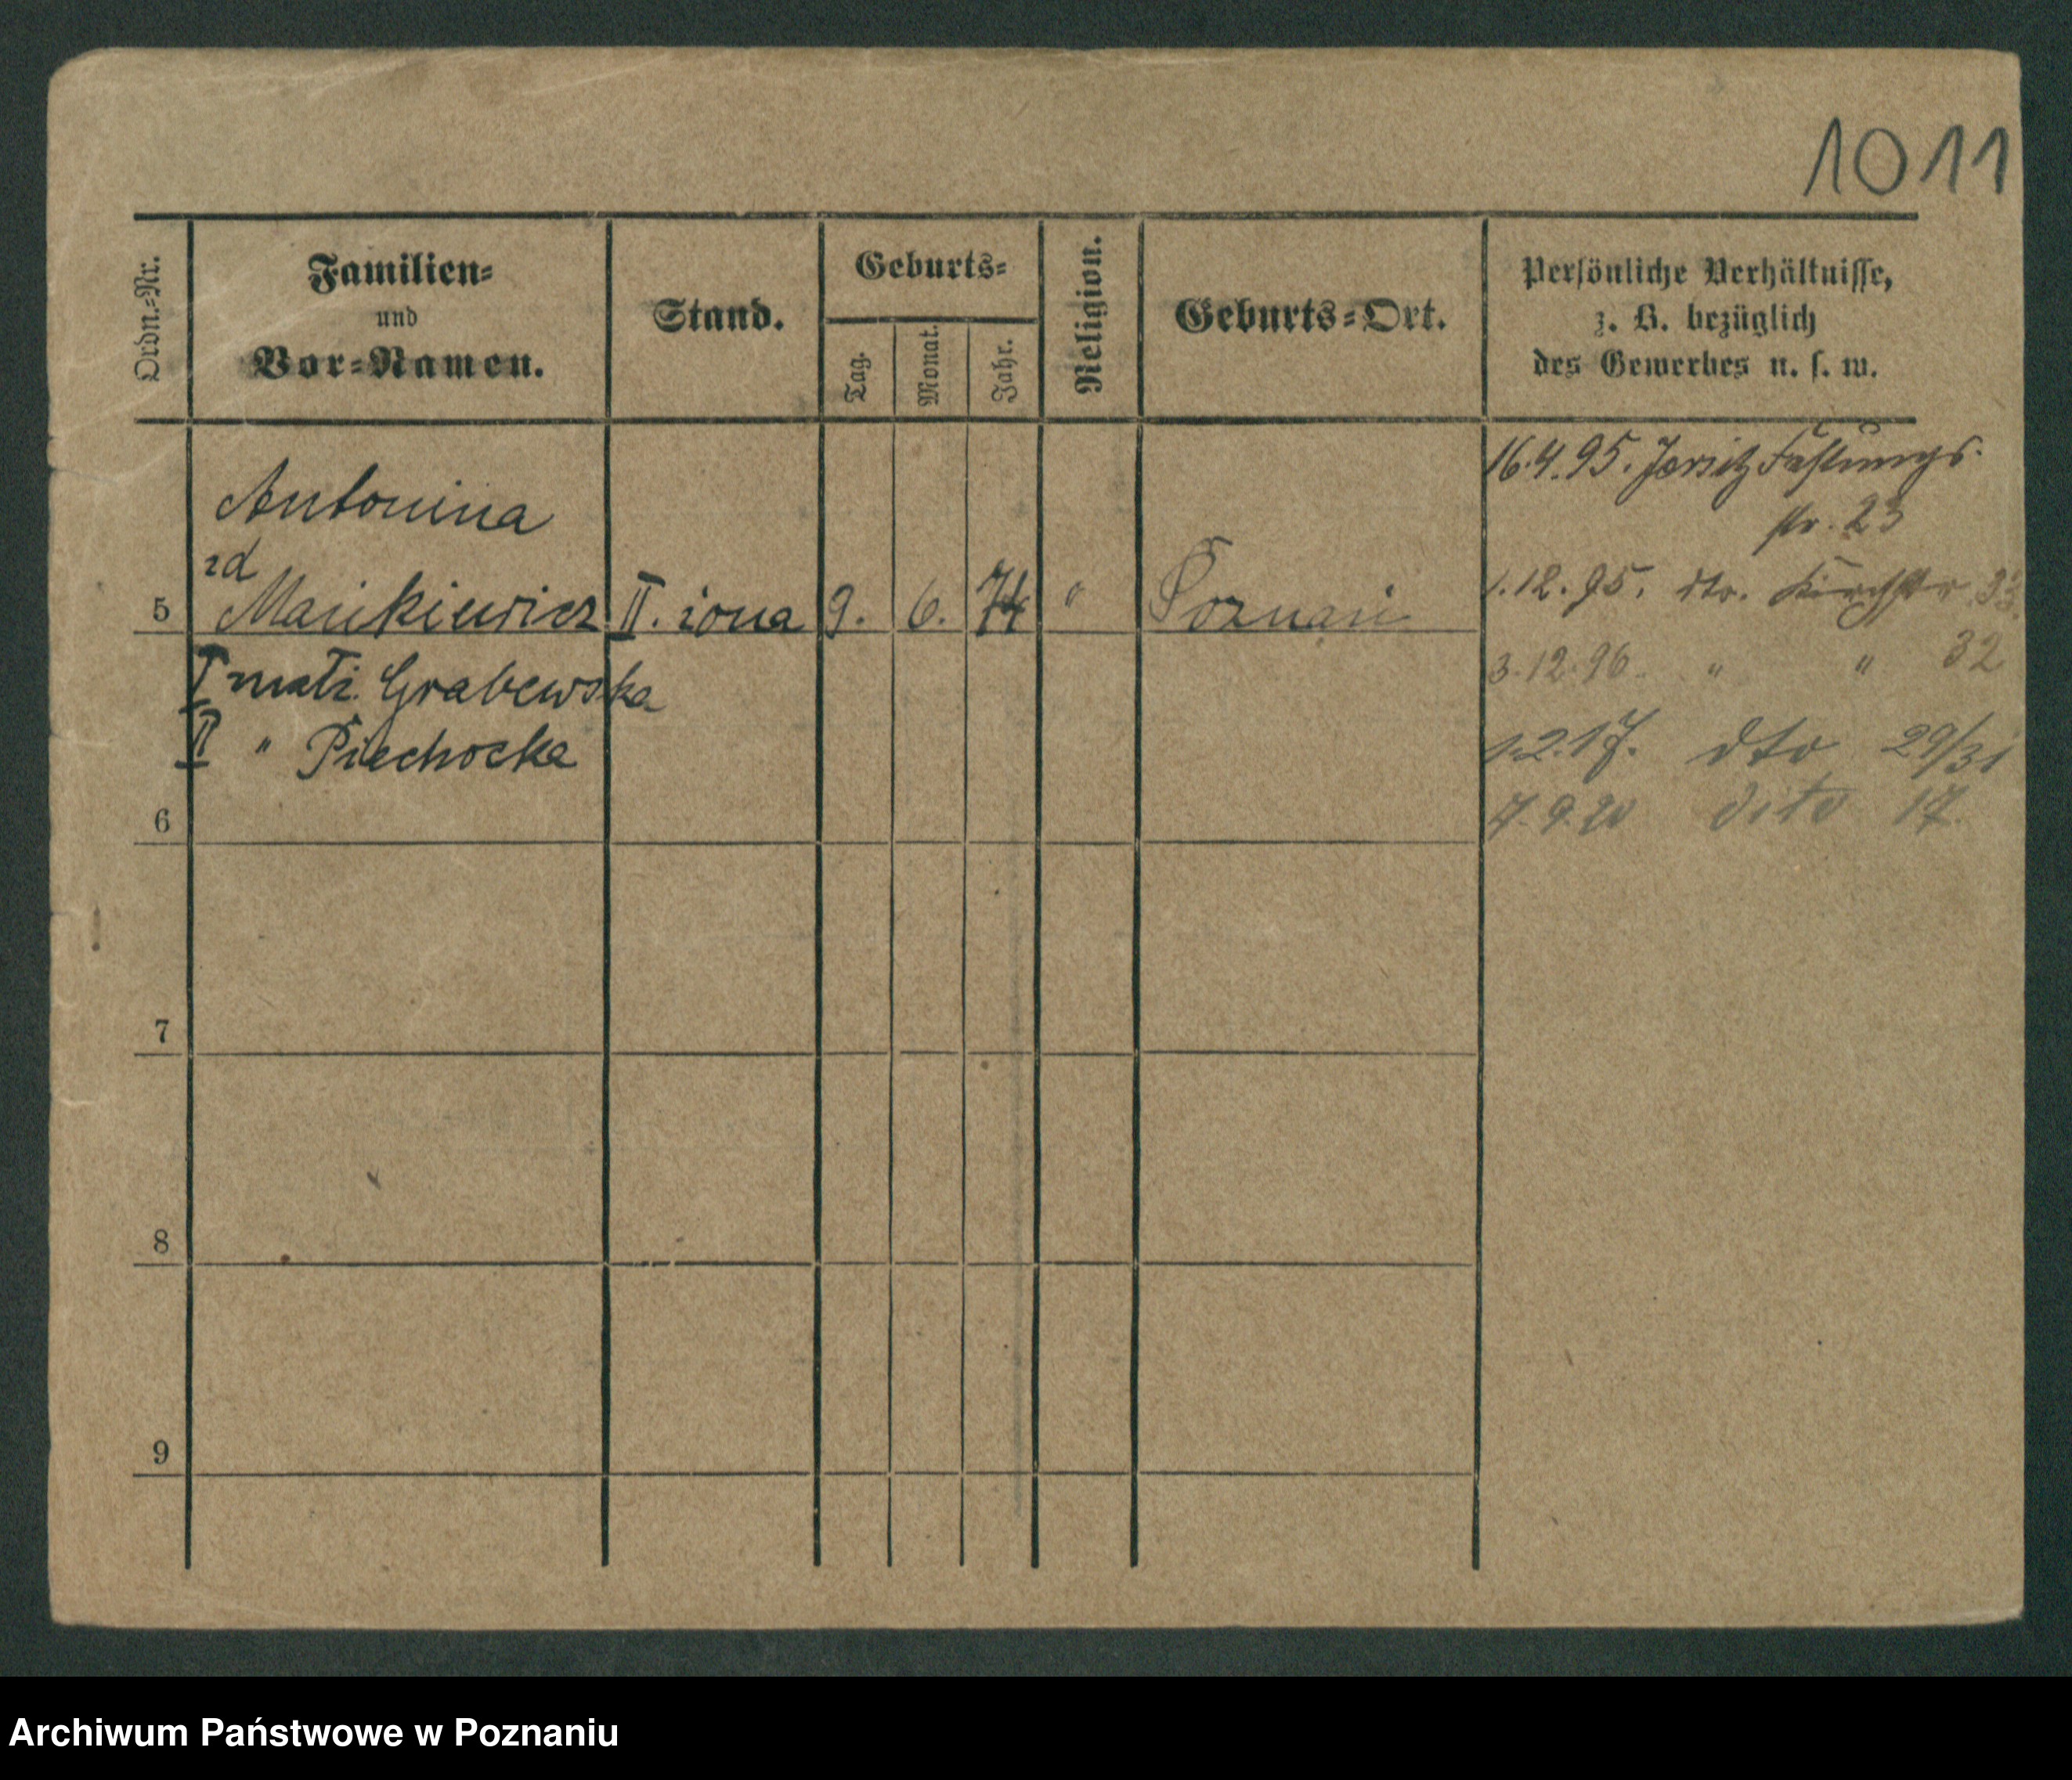 1011
Ordn.=Nr.
Familien=
und
Vor=Namen.
Stand.
Geburts=
Tag.
Monat.
Jahr.
Religion.
Geburts=Ort.
Persönliche Verhältnisse,
z. B. bezüglich
des Gewerbes u. s. w.
16.4.95. Jersitz Festungs-
str. 23
Antonina
zd
5 Mańkiewicz II. żona 9. 6. 74 " Poznań
1.12.95. dto. Kirchstr 33.
I matż. Grabewska
3.12.96. " " 32
II " Piechocka
1.2.17. dto 29/31
7.9.20 dito 17.
6
7
8
9
Archiwum Państwowe w Poznaniu